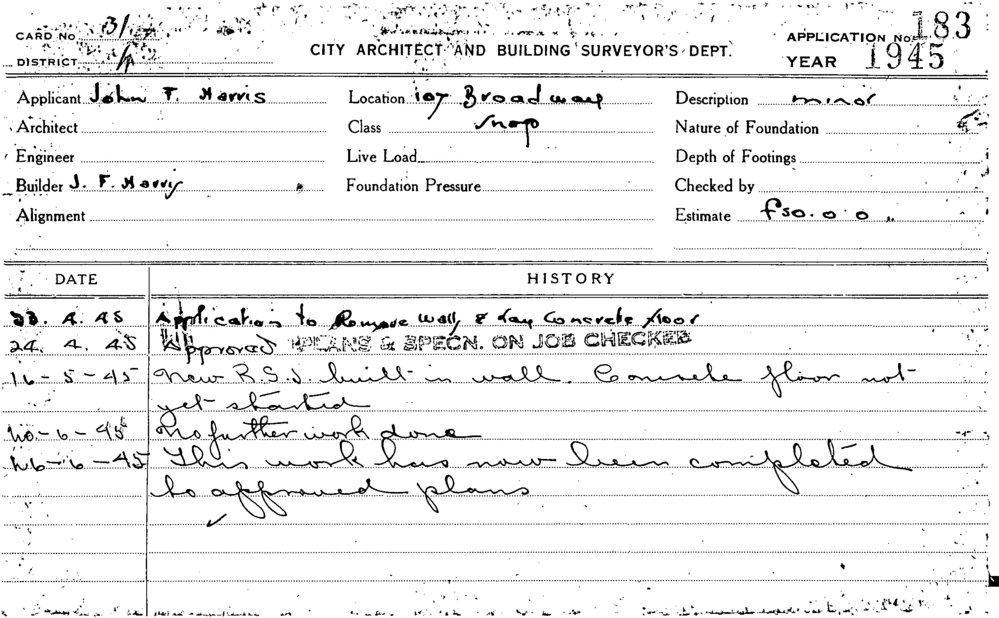 CARD NO 3/
APPLICATION NO. 183
DISTRICT
CITY ARCHITECT AND BUILDING SURVEYOR'S DEPT.
YEAR 1945
Applicant John F. Harris Location 107 Broadway Description minor
Architect Class Shop Nature of Foundation
Engineer Live Load Depth of Footings
Builder J. F. Harris Foundation Pressure Checked by
Alignment Estimate £50.0.0
DATE HISTORY
23. 4. 45 Application to Remove Wall & Lay Concrete floor
24. 4. 45 Approved PLANS & SPECN. ON JOB CHECKED
16-5-45 New R.S.J. built in wall. Concrete floor not
yet started
No further work done
26-6-45 This work has now been completed
to approved plans